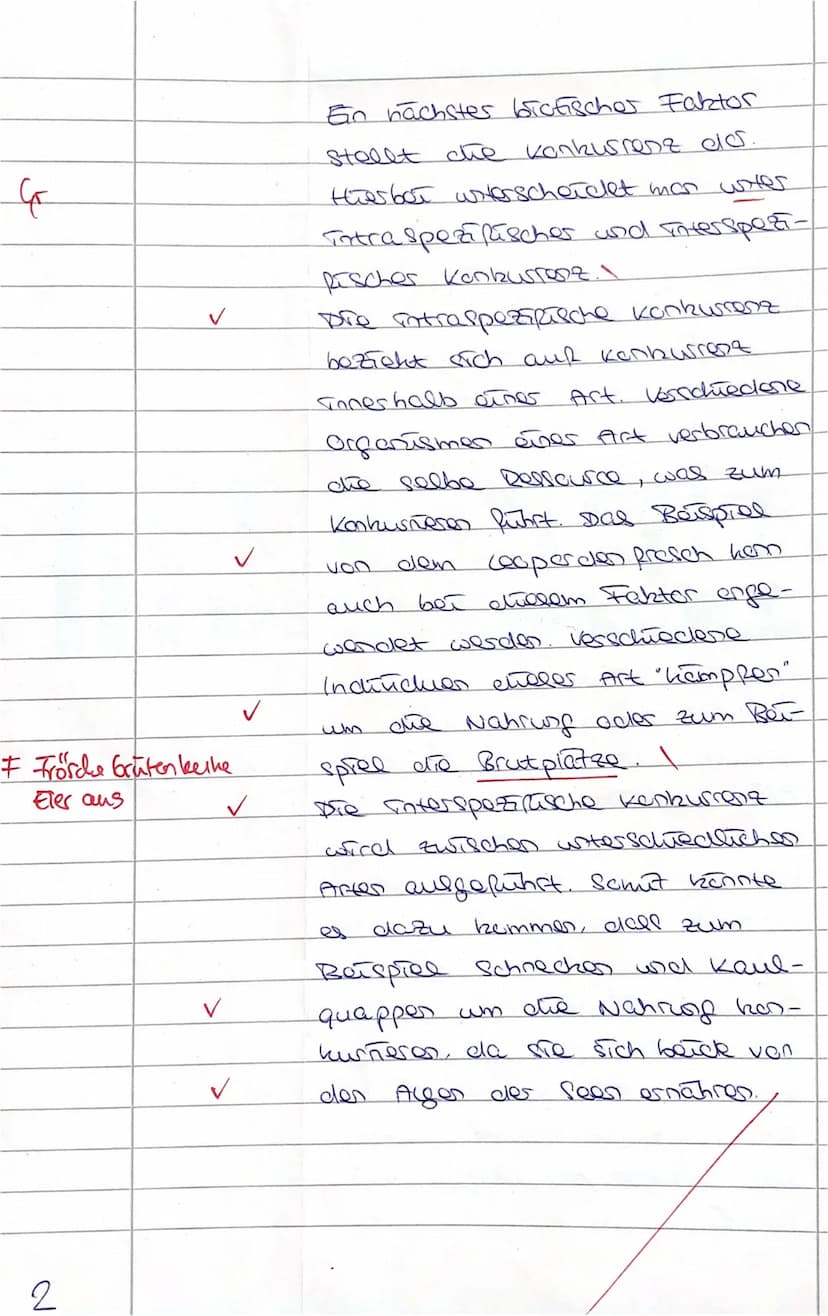 Ein nächster biotischer Faktor
stellt die Konkurrenz dar.
Hierbei unterscheidet man unter
Gr
intraspezifischer und interspezi-
fischer Konkurrenz.
Die intraspezifische Konkurrenz
bezieht sich auf Konkurrenz
innerhalb einer Art. Verschiedene
Organismen einer Art verbrauchen
die selbe Ressource, was zum
Konkurrieren führt. Das Beispiel
von dem Leopardenfrosch kann
auch bei diesem Faktor ange-
wendet werden. Verschiedene
Individuen dieser Art "kämpfen"
um die Nahrung oder zum Bei-
spiel die Brutplätze.
≠ Frösche brüten keine
Eier aus
Die interspezifische Konkurrenz
wird zwischen unterschiedlichen
Arten ausgeführt. Somit könnte
es dazu kommen, dass zum
Beispiel Schnecken und Kaul-
quappen um die Nahrung kon-
kurrieren, da sie sich beide von
den Algen des Sees ernähren.
2